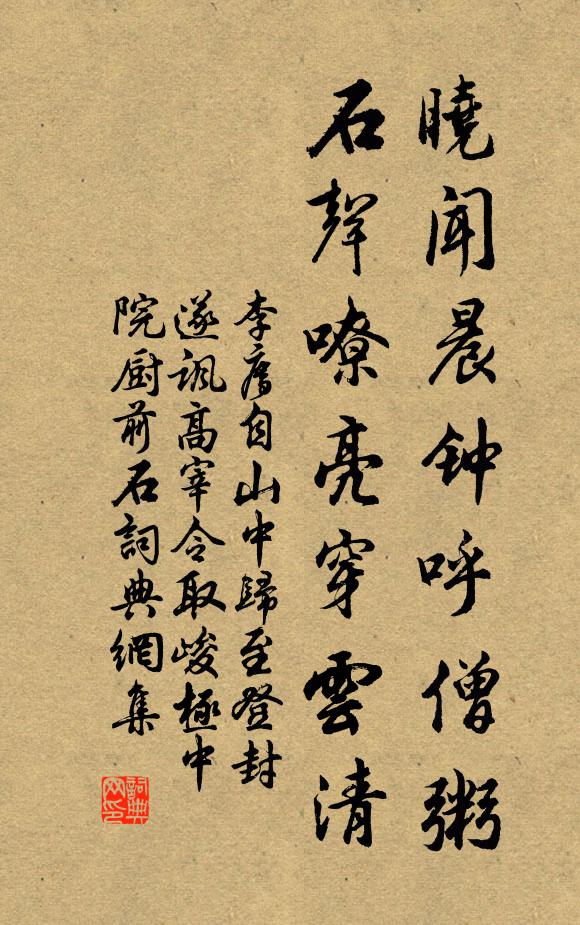 曉聞晨钟呼僧粥
石聲嘹亮穿雲清
李廌自山中歸至登封
遂諷高宰令取峻極中
院厨前石詞典網集
詞典网印